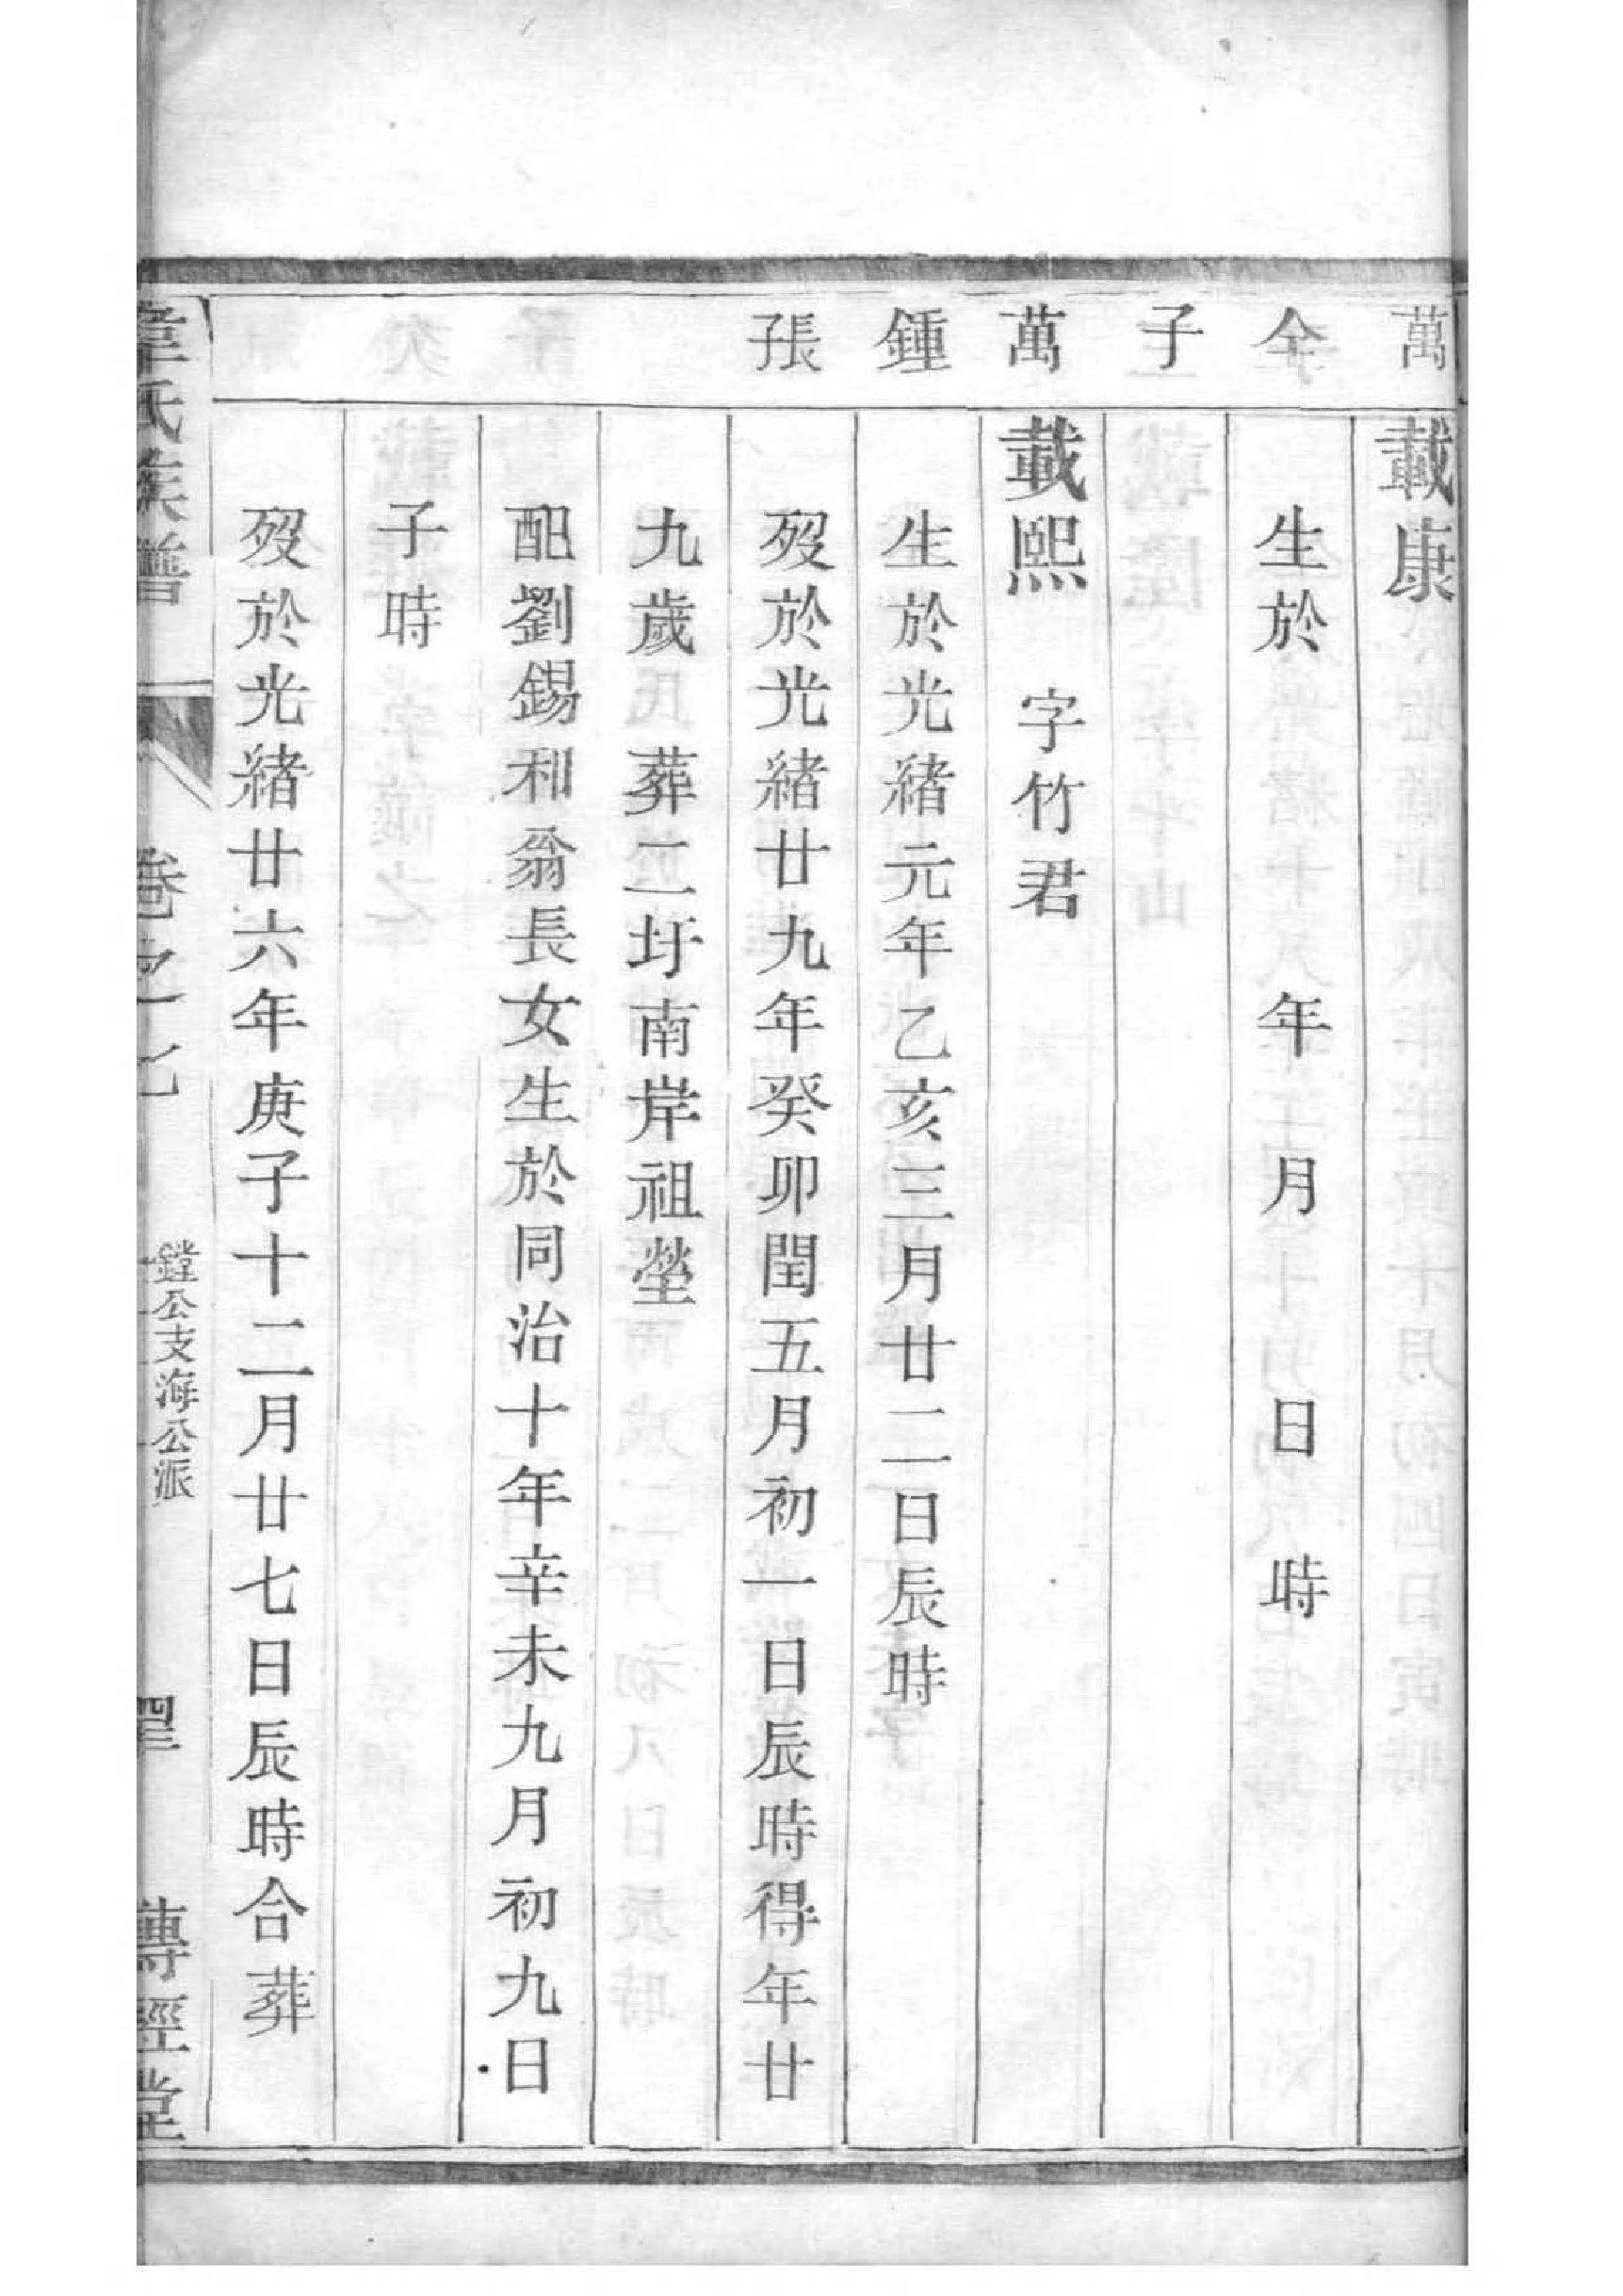 萬 載康
全 生於 年 月 日 時
子
萬 載熙 字竹君
鍾 生於光緒元年乙亥三月廿二日辰時
張 歿於光緒廿九年癸卯閏五月初一日辰時得年廿
九歲葬二圩南岸祖塋
配劉錫和翁長女生於同治十年辛未九月初九日
子時
歿於光緒廿六年庚子十二月廿七日辰時合葬
韋氏族譜 卷之乙 鏜公支海公派 傳經堂